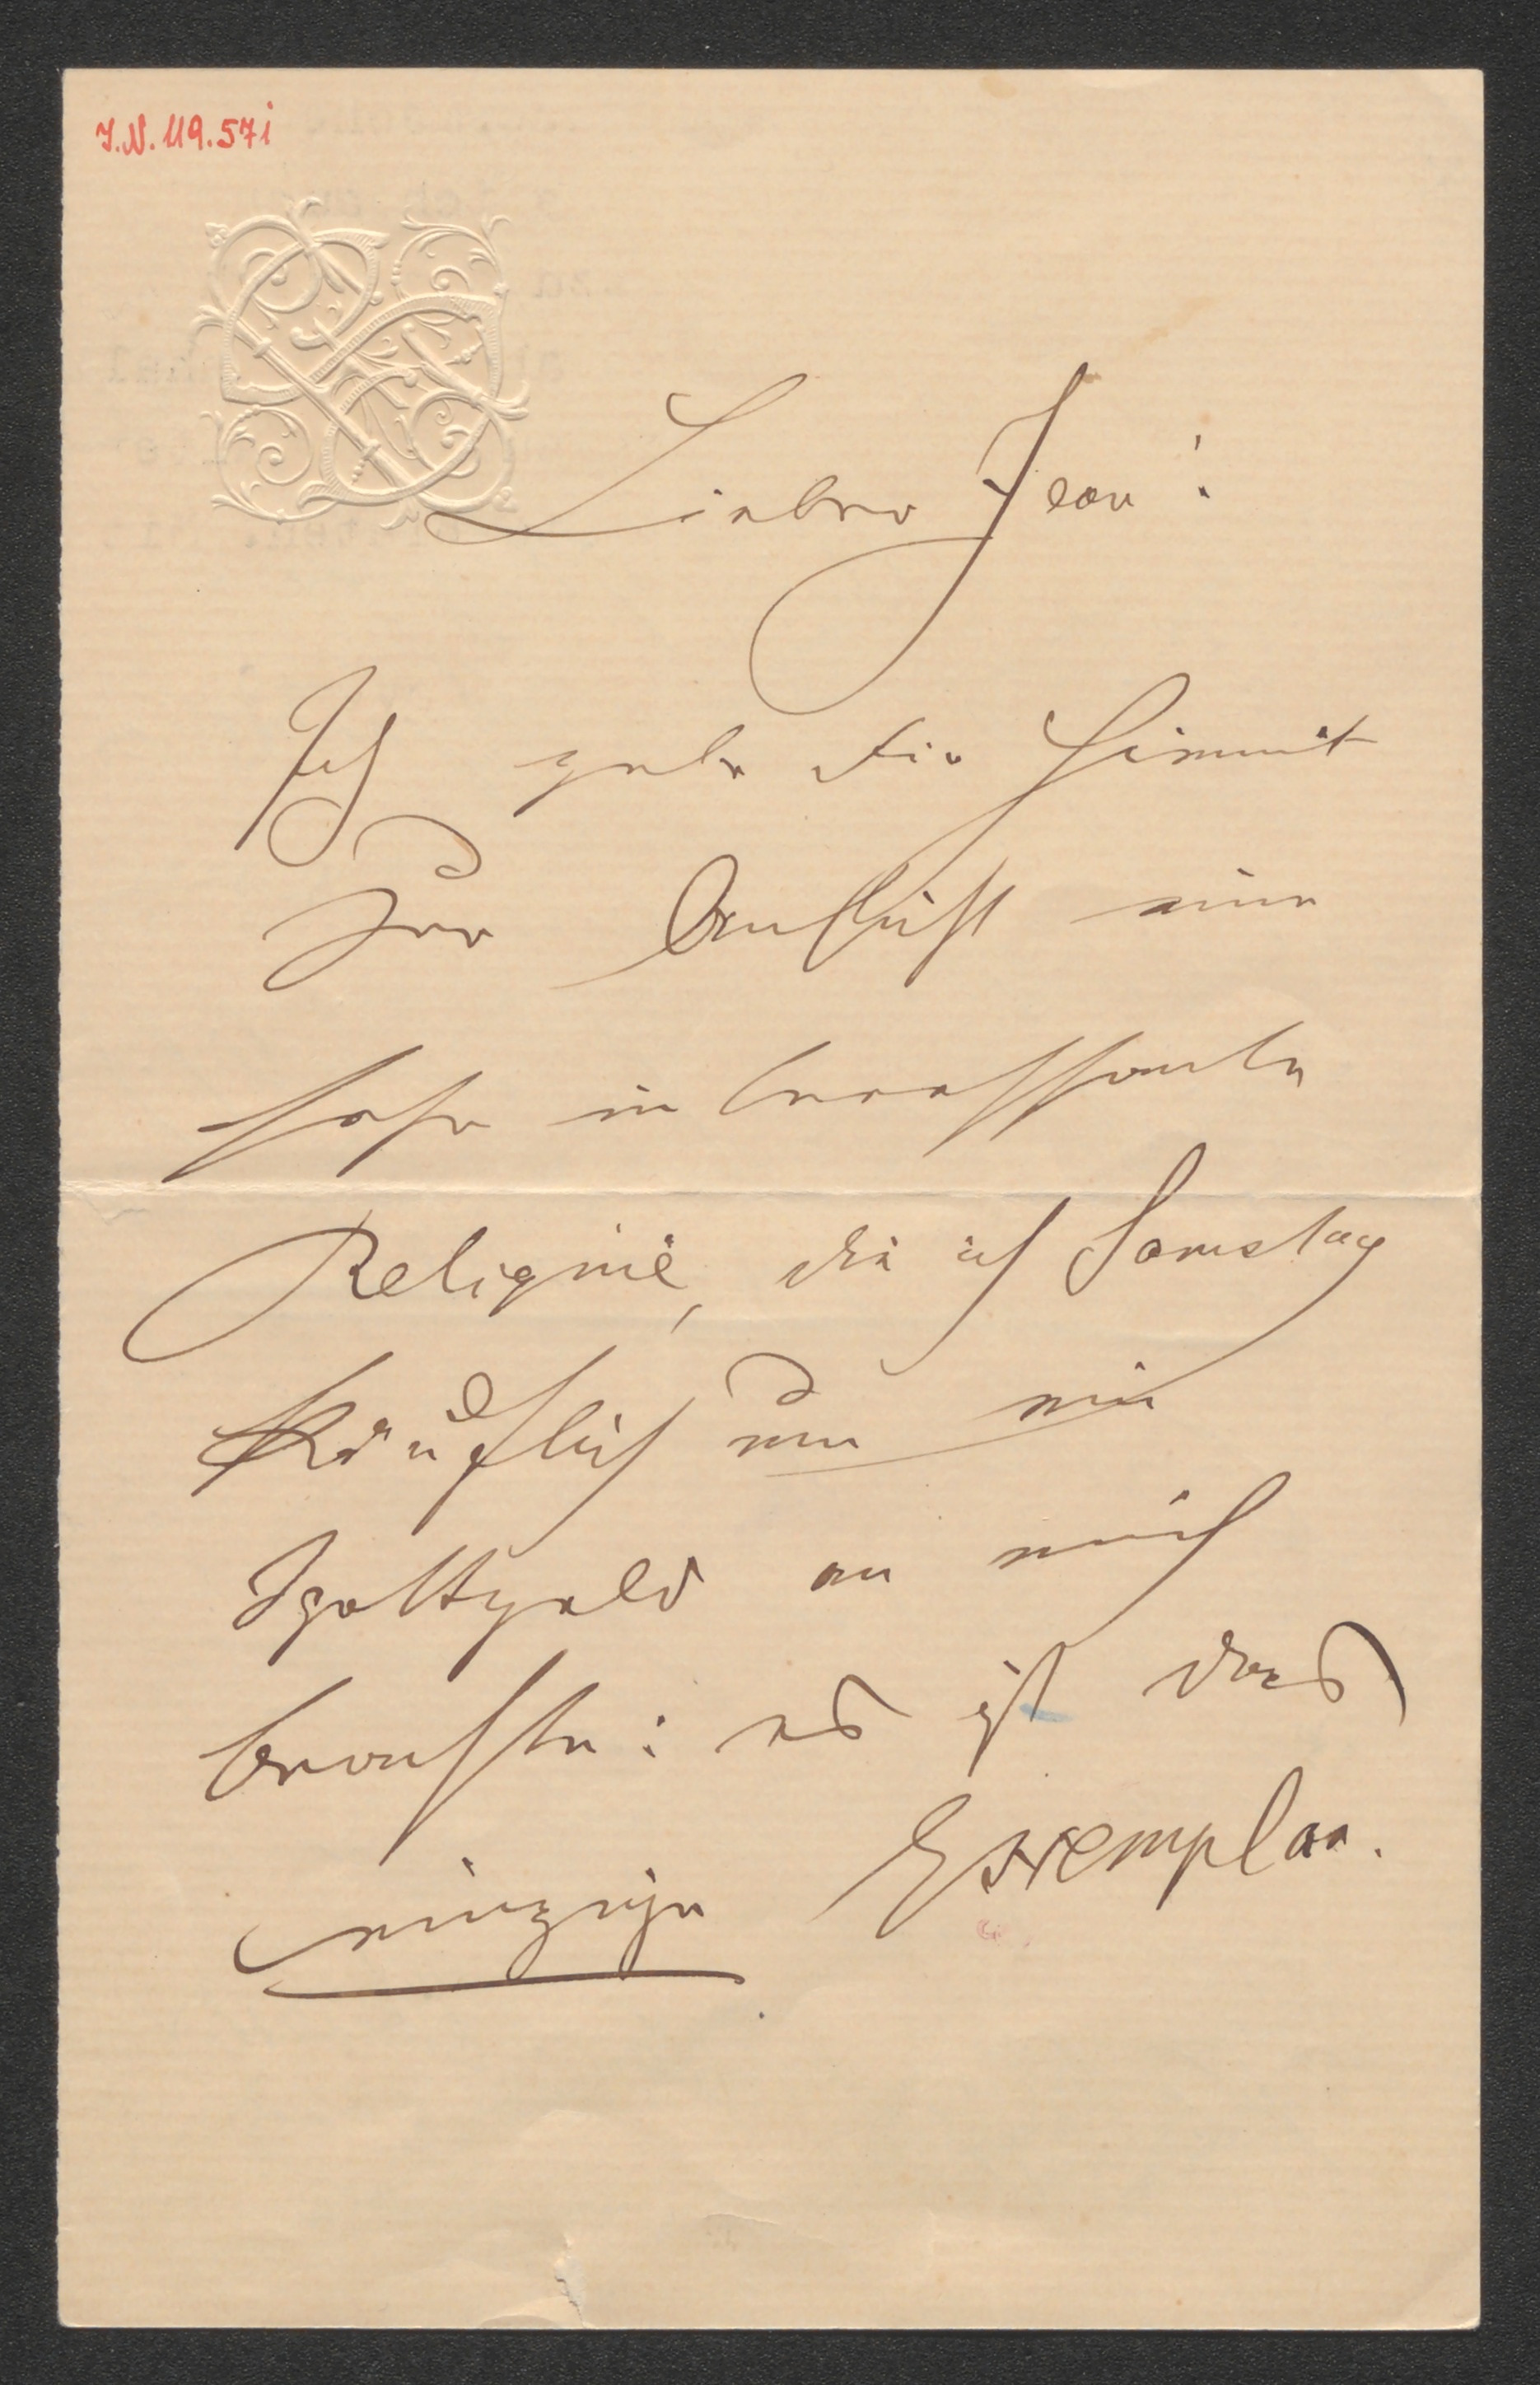 I.N. 119.571
Lieber Jean!
Ich gebe Dir hiemit
zur Ansicht eine
sehr interessante
Reliquie, die ich Samstag
käuflich um ein
Spottgeld an mich
brachte: es ist das
einzige Exemplar.